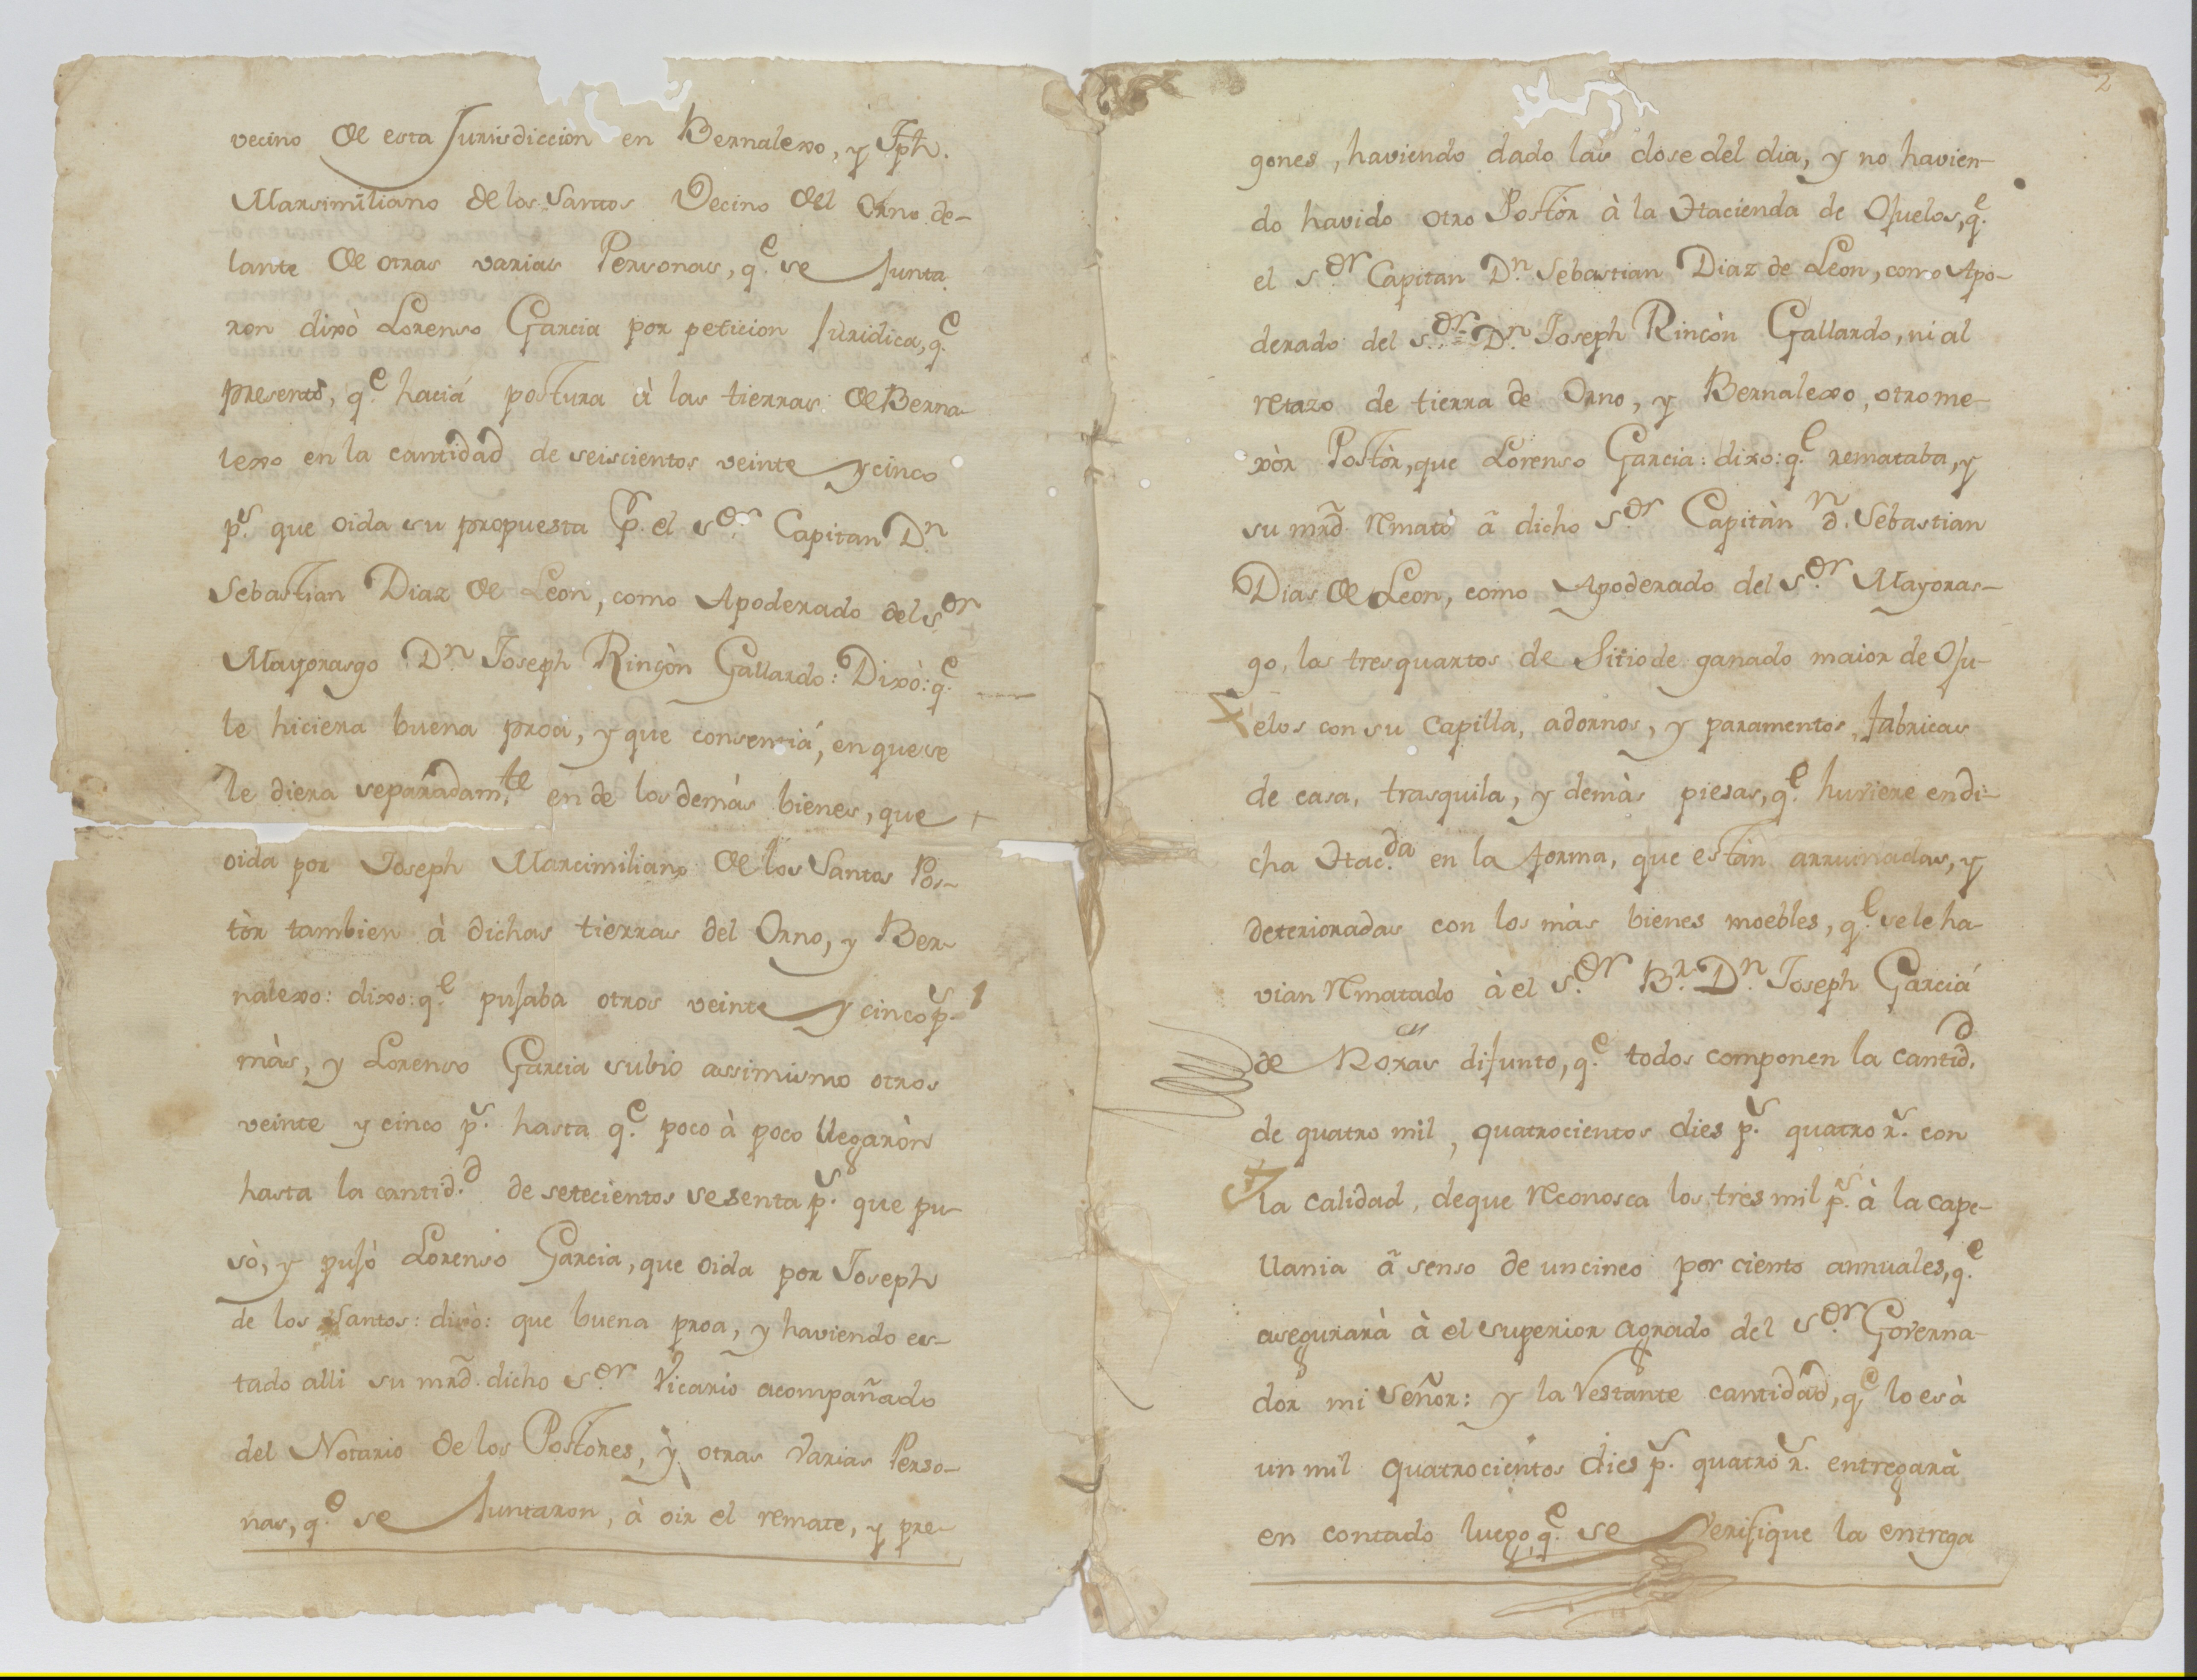 vecino de esta Jurisdiccion en Bernalexo, y Jph.
Marsimiliano de los Santos Vecino del Orno de-
lante de otras varias Personas, q.e se Junta
ron dixò Lorenso Garcia por peticion Juridica, q.e
presentò, q.e haciá postura à las tierras de Berna-
lexo en la cantidad de seiscientos veinte y cinco
p.s que oida su propuesta p.r el s.or Capitan D.n
Sebastian Diaz de Leon, como Apoderado del s.or
Mayorasgo D.n Joseph Rinçòn Gallardo: Dixò: q.e
le hiciera buena proa, y que consentiá, en que se
le diera separadam.te en de los demàs bienes, que +
oida por Joseph Marcimiliano de los Santos Pos-
tòr tambien à dichas tierras del Orno, y Ber-
nalexo: dixo: q.e pujaba otros veinte y cinco p.s
màs, y Lorenso Garcia subio assimismo otros
veinte y cinco p.s hasta q.e poco à poco llegaròn
hasta la cantid.d de setecientos sesenta p.s que pu-
sò, y pujò Lorenso Garcia, que oida por Joseph
de los Santos: dixò: que buena proa, y haviendo es-
tado alli su mrd. dicho s.or Vicario acompañado
del Notario de los Postòres, y otras varias Perso-
nas, q.e se Juntaron, à oir el remate, y pre-
2
gones, haviendo dado las dose del dia, y no havien-
do havido otro Postòr à la Hacienda de Ojuelos, q.e
el s.or Capitan D.n Sebastian Diaz de Leon, como Apo-
derado del s.or D.n Joseph Rincòn Gallardo, ni al
retazo de tierra de Orno, y Bernalexo, otro me-
xòr Postòr, que Lorenso Garcia: dixo: q.e remataba, y
su mrd. rematò à dicho s.or Capitàn d.n Sebastian
Dias de Leon, como Apoderado del s.or Mayoras-
go, las tres quartos de Sitio de ganado maior de Oju-
elos con su capilla, adornos, y paramentos, fabricas
de casa, trasquila, y demàs piesas, q.e huviere en di-
cha Hac.da en la forma, que estàn arruinadas, y
deterioradas con los màs bienes moebles, q.e se le ha-
vian rematado à el s.or B.r D.n Joseph Garciá
de Roxas difunto, q.e todos componen la cantid.d
de quatro mil, quatrocientos dies p.s quatro r.s con
la calidad, de que reconosca los tres mil p.s à la cape-
llania à senso de un cinco por ciento annuales, q.e
asegurarà à el superior agrado del s.or Governa-
dor mi Señor: y la restante cantidad, q.e lo es à
un mil quatrocientos dies p.s quatro r.s entregarà
en contado luego, q.e se verifique la entrega